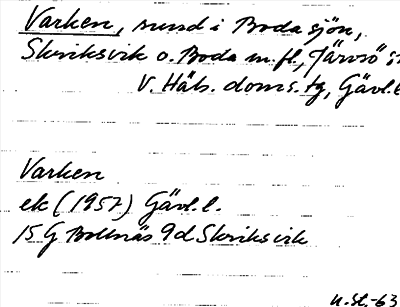 Varken, sund i Bodasjön,
Skriksvik o. Boda m.fl., Järvsö
V. Häls. doms. tg, Gävl.
Varken
ek (1957) Gävl. l.
15 G Bollnäs 9d Skriksvik
u.St.-63